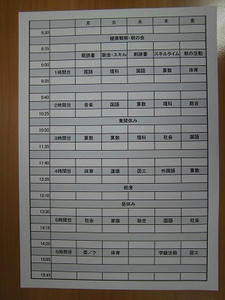 月 火 水 木 金
8:30
健康観察・朝の会
朝読書 朝会・スキル 朝読書 スキルタイム 朝の活動
1時間目 国語 理科 国語 算数 体育
9:40
2時間目 音楽 国語 理科
10:25
業間休み
3時間目 算数 算数 理科 社会 国語
11:40
4時間目 体育 道徳 図工 外国語 算数
12:25
給食
昼休み
5時間目 社会 家庭 総合 国語 社会
14:20
6時間目 体育 学級活動 図工
15:05
15:45